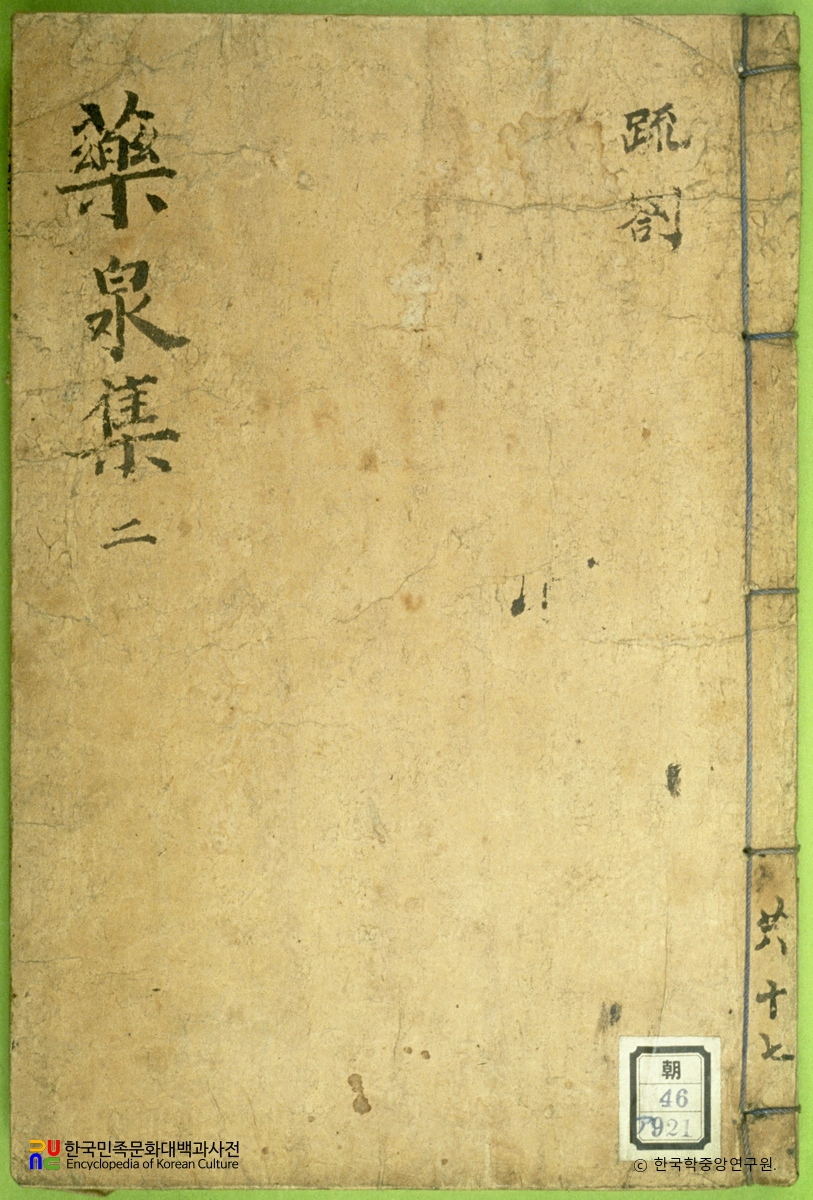 䟽劄
藥泉集 二
共十七
朝
46
921
한국민족문화대백과사전
Encyclopedia of Korean Culture
© 한국학중앙연구원.